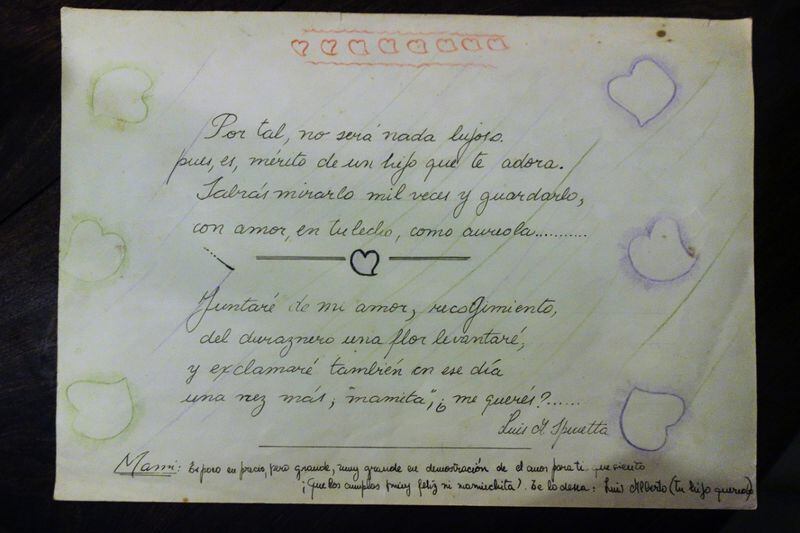 Por tal, no será nada lujoso.
pues, es, mérito de un hijo que te adora.
Sabrás mirarlo mil veces y guardarlo,
con amor, en tu lecho, como aureola...........
Juntaré de mi amor, recogimiento,
del duraznero una flor levantaré,
y exclamaré también en ese día
una vez más, "mamita", ¿me querés?......
Luis A Spinetta
Mami: Es poco en precio, pero grande, muy grande en demostración de el amor para ti que siento
¡Que los cumplas muy feliz mi mamuchita! Te lo desea: Luis Alberto (tu hijo querido)